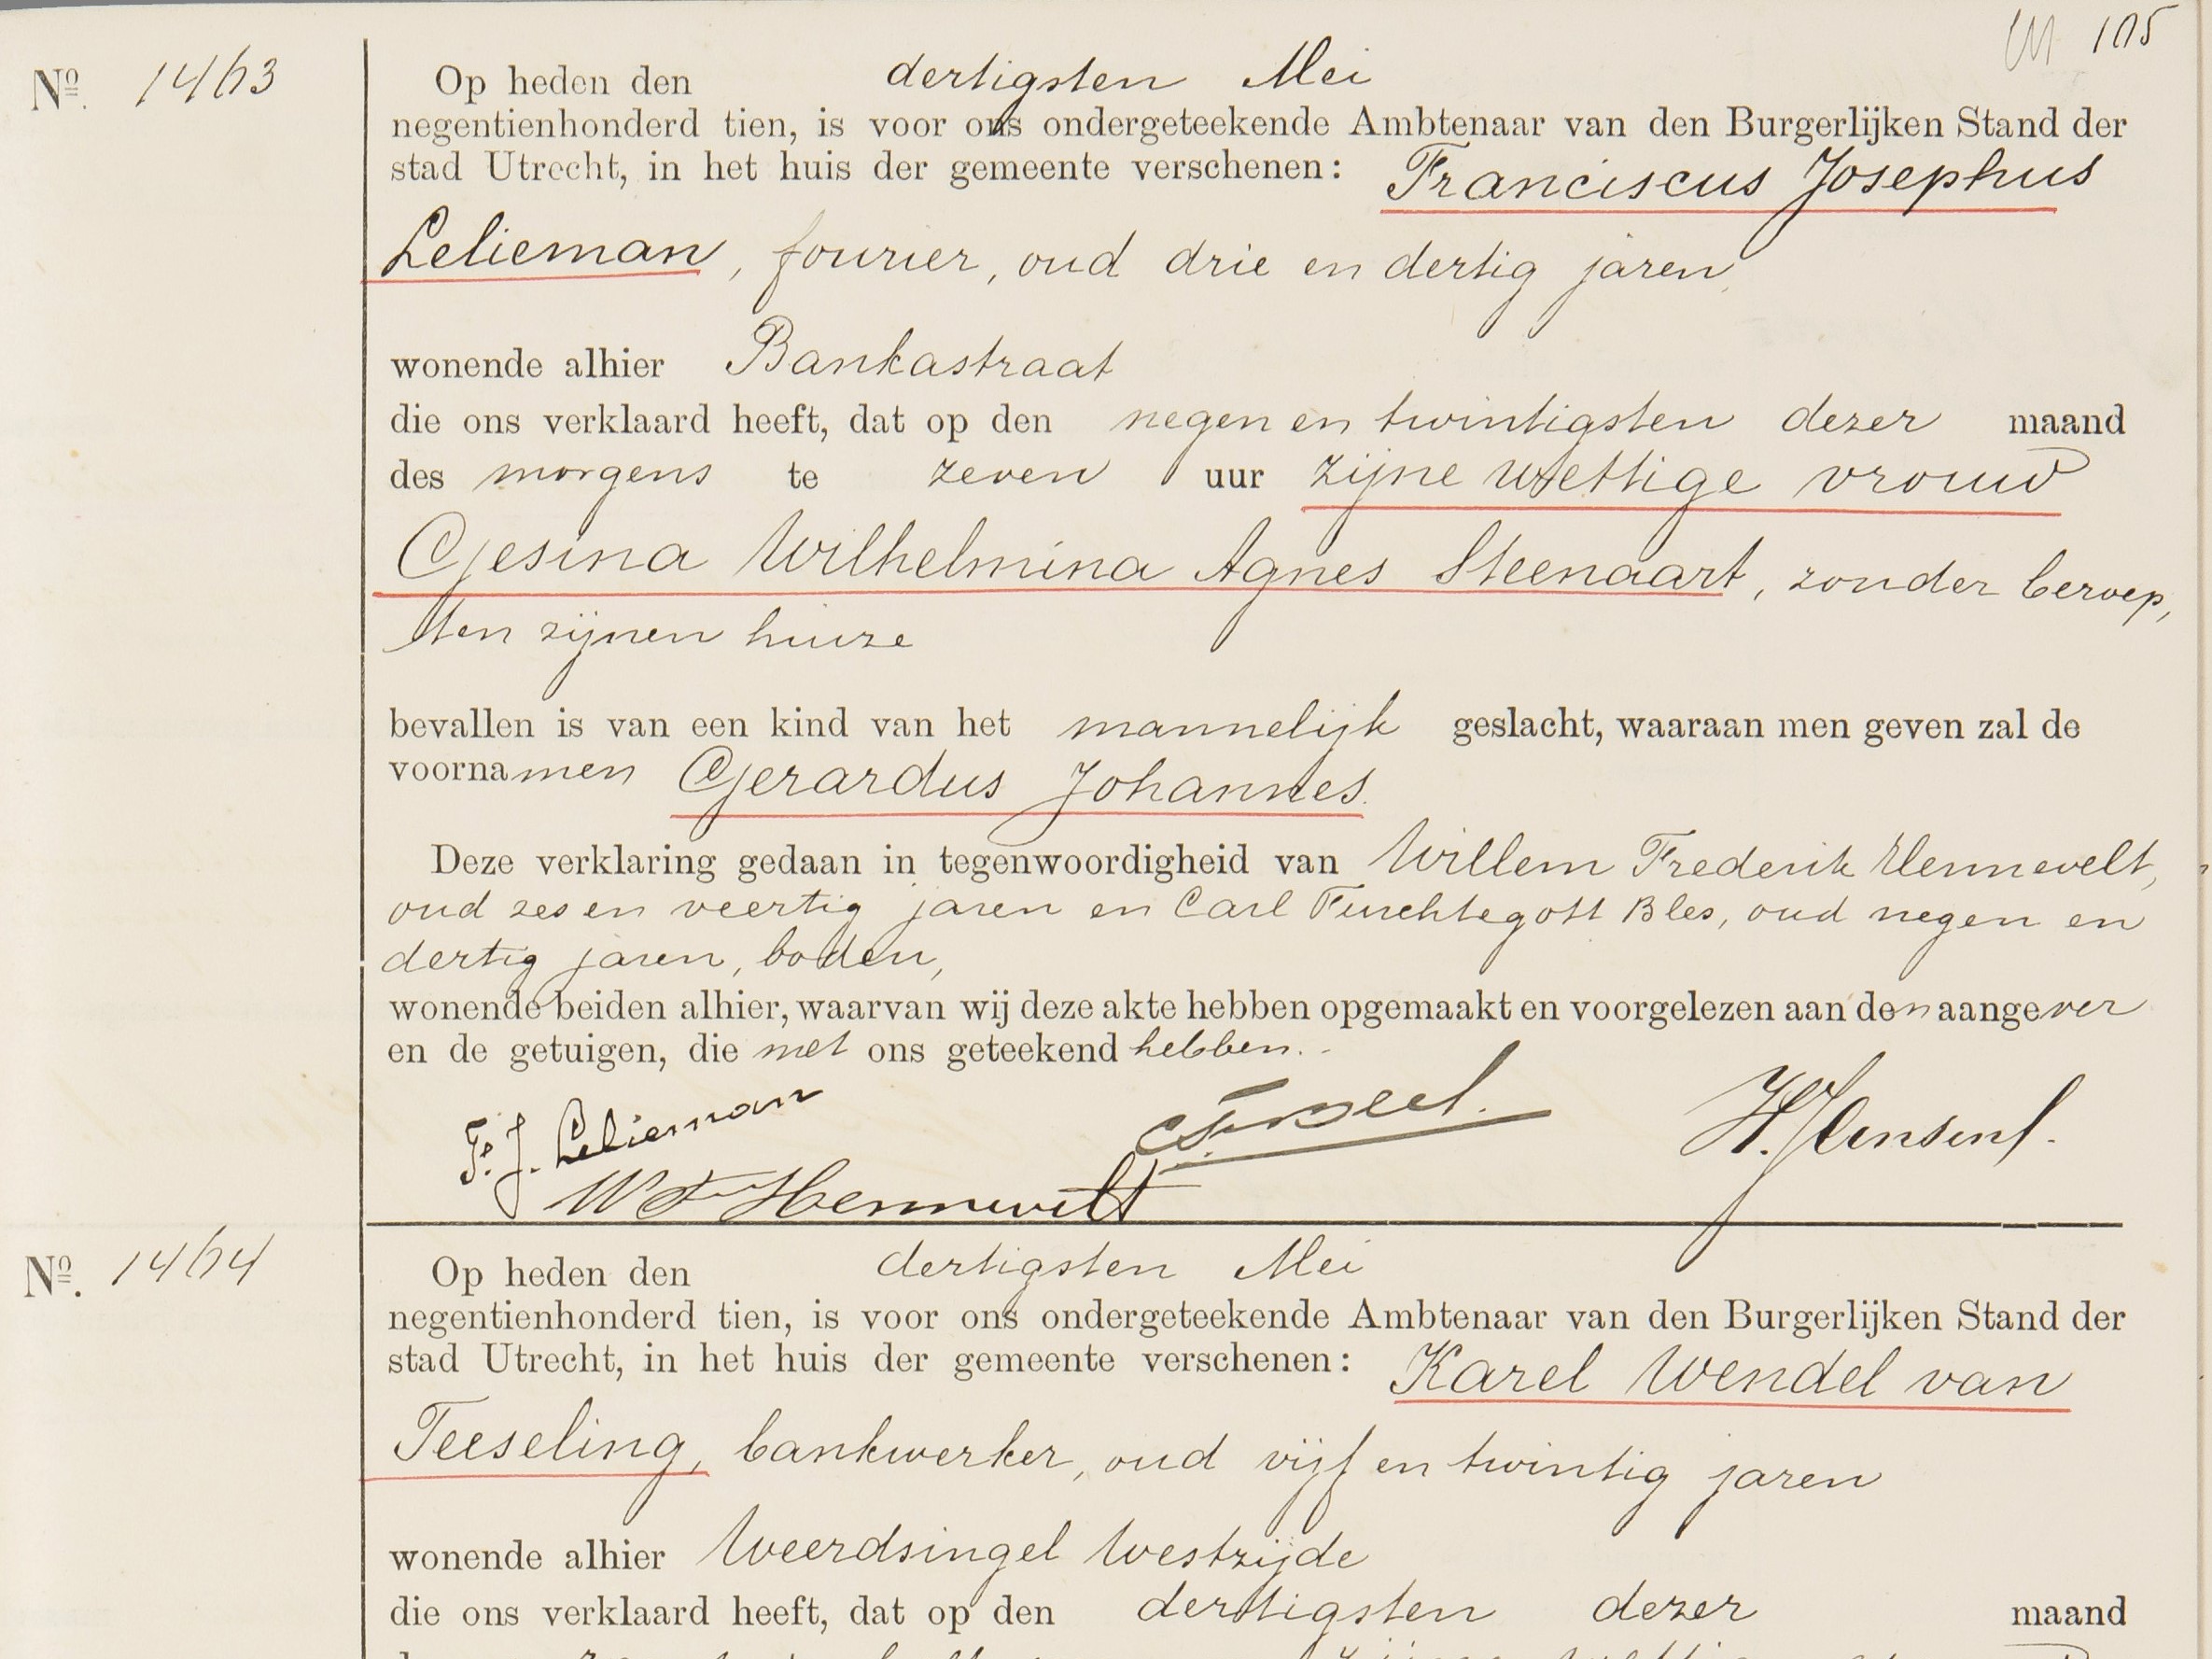 105
No. 1463
Op heden den dertigsten Mei
negentienhonderd tien, is voor ons ondergeteekende Ambtenaar van den Burgerlijken Stand der
stad Utrecht, in het huis der gemeente verschenen: Franciscus Josephus
Lelieman, fourier, oud drie en dertig jaren,
wonende alhier Bankastraat
die ons verklaard heeft, dat op den negen en twintigsten dezer maand
des morgens te zeven uur zijne wettige vrouw
Gesina Wilhelmina Agnes Steenaart, zonder beroep,
ten zijnen huize
bevallen is van een kind van het mannelijk geslacht, waaraan men geven zal de
voornamen Gerardus Johannes.
Deze verklaring gedaan in tegenwoordigheid van Willem Frederik Hennevelt,
oud zes en veertig jaren en Carl Furchtegott Bles, oud negen en
dertig jaren, boden,
wonende beiden alhier, waarvan wij deze akte hebben opgemaakt en voorgelezen aan den aangever
en de getuigen, die met ons geteekend hebben.
F. J. Lelieman
W F Hennevelt
No. 1464
Op heden den dertigsten Mei
negentienhonderd tien, is voor ons ondergeteekende Ambtenaar van den Burgerlijken Stand der
stad Utrecht, in het huis der gemeente verschenen: Karel Wendel van
Teeseling, bankwerker, oud vijf en twintig jaren
wonende alhier Weerdsingel Westzijde
die ons verklaard heeft, dat op den dertigsten dezer maand